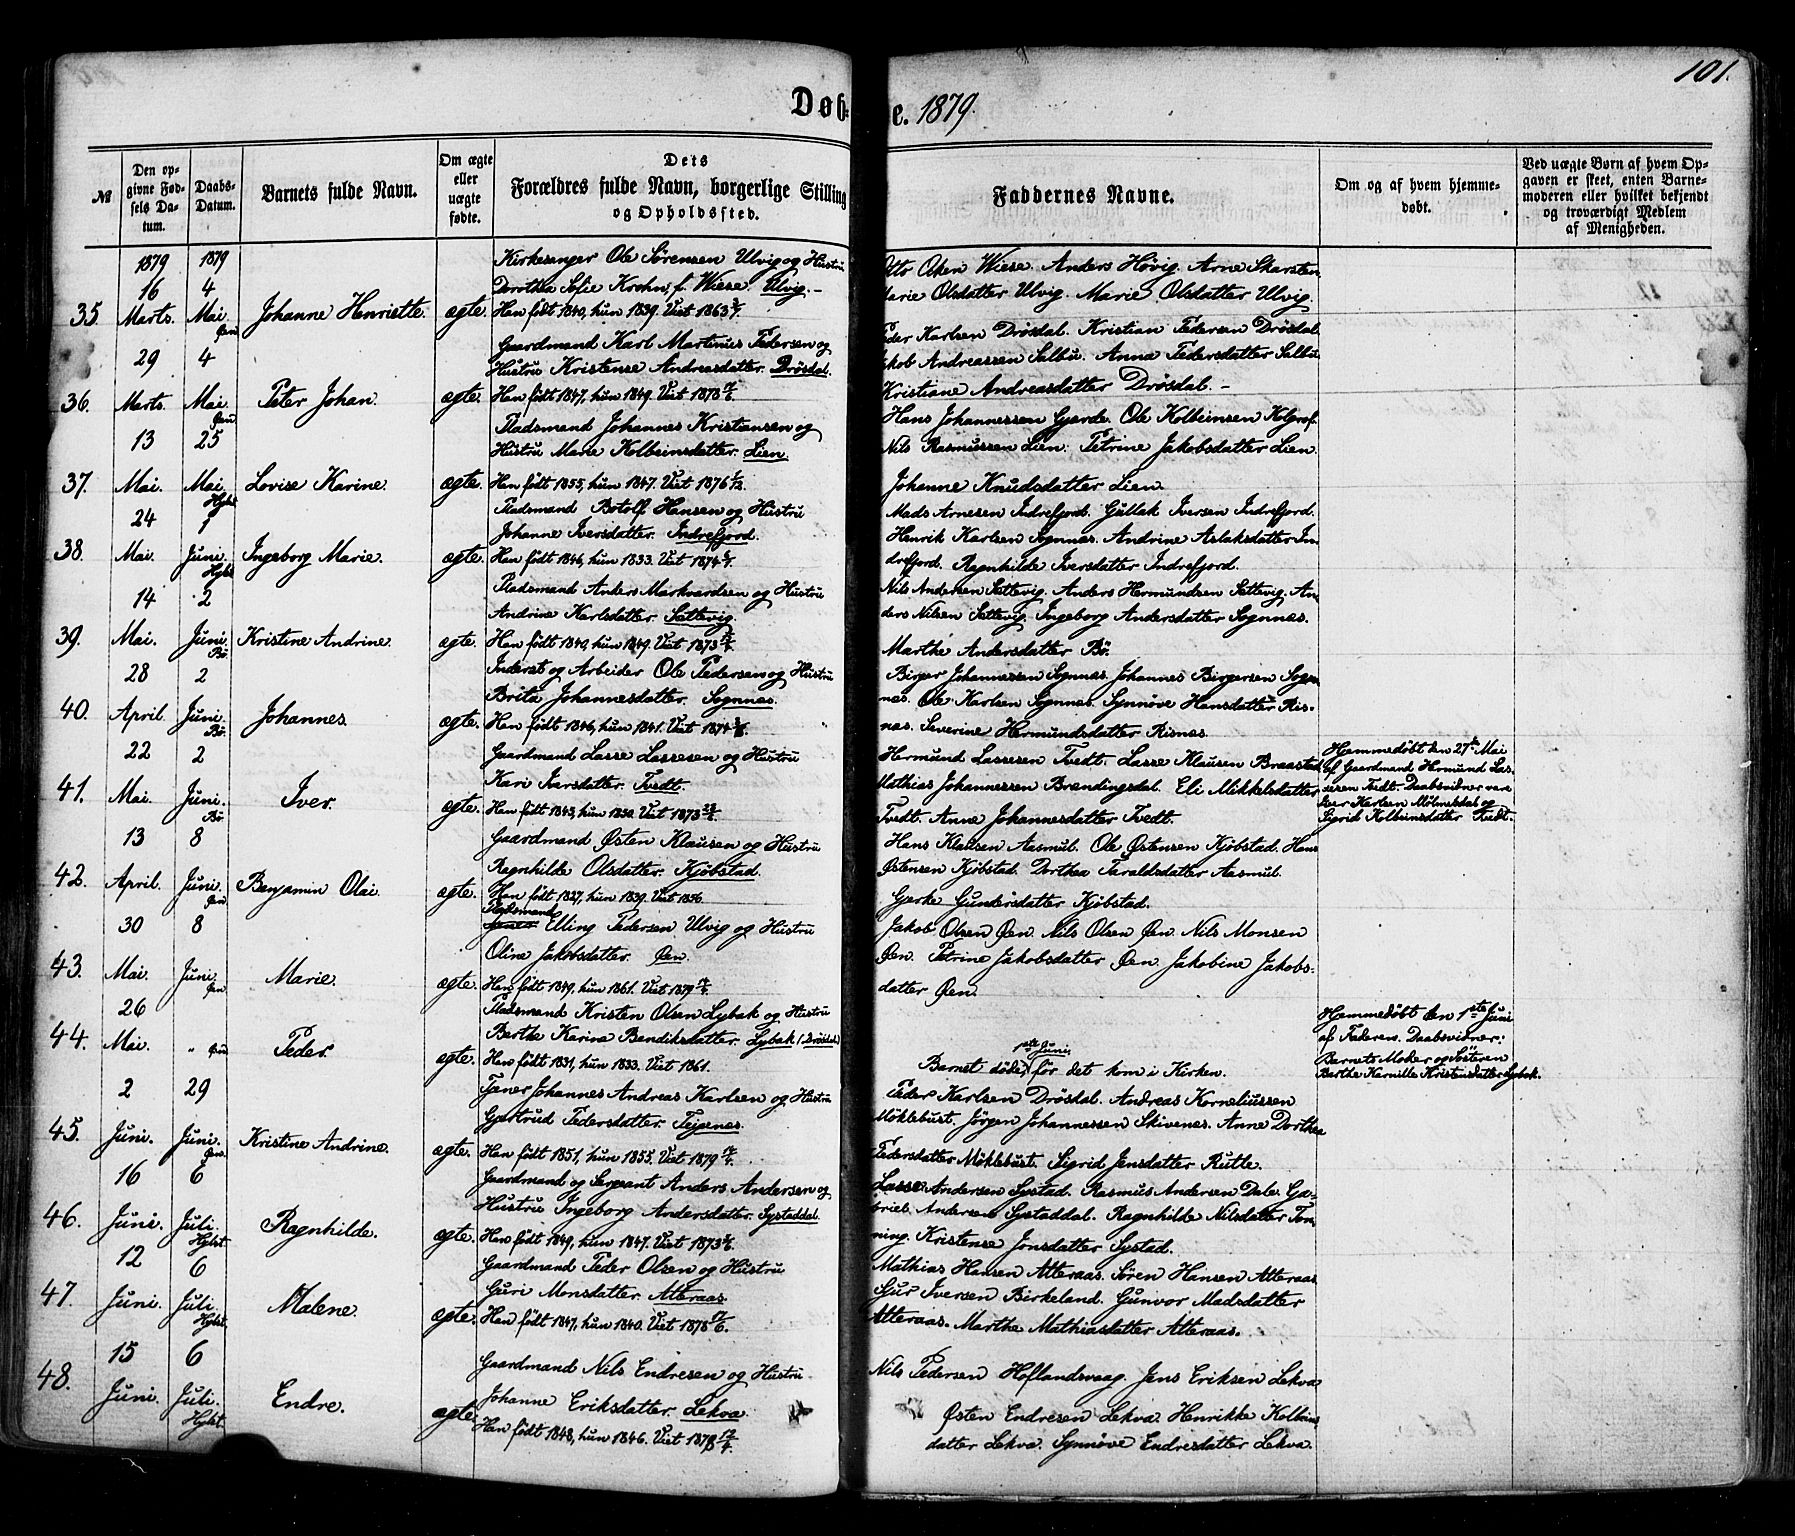 101.
Døb-
e. 1879.
№
Den op-
givne Fød-
sels Da-
tum.
Daabs-
Datum.
Barnets fulde Navn.
Om ægte
eller
uægte
fødte.
Dets
Forældres fulde Navn, borgerlige Stilling
og Opholdssted.
Faddernes Navne.
Om og af hvem hjemme-
døbt.
Ved uægte Børn af hvem Op-
gaven er skeet, enten Barne-
moderen eller hvilket bekjendt
og troværdigt Medlem
af Menigheden.
1879 1879
35. 16 Marts. 4 Mai Øen Johanne Henriette. ægte.
Kirkesanger Ole Sørensen Ulvig og Hustru
Dorothea Sofie Krohn, f. Wiese. Ulvig.
Han født 1840, hun 1839. Viet 1863
Otto Olsen Wiese. Anders Høvig. Arne Skarsten
Marie Olsdatter Ulvig. Marie Olsdatter Ulvig.
36. 29 Marts. 4 Mai. Øen Peter Johan. ægte.
Gaardmand Karl Martinus Pedersen og
Hustru Kristense Andreasdatter. Drösdal.
Han født 1847, hun 1849. Viet 1878
Peder Karlsen Drösdal. Kristian Pedersen Drösdal
Jakob Andreassen Salbu. Anna Pedersdatter Salbu
Kristiane Andreasdatter Drösdal. -
37. 13 Mai. 25 Mai. Hylst Lovise Karine. ægte.
Pladsmand Johannes Kristiansen og
Hustru Marie Kolbeinsdatter. Lien.
Han født 1855, hun 1847. Viet 1876
Hans Johannessen Gjerde. Ole Kolbeinsen Kolgrof.
Nils Rasmussen Lien. Petrine Jakobsdatter Lien.
Johanne Knudsdatter Lien.
38. 24 Mai. 1 Juni. Hylst Ingeborg Marie. ægte.
Pladsmand Botolf Hansen og Hustru
Johanne Iversdatter. Indrefjord.
Han født 1846, hun 1833. Viet 1874
Mads Arnesen Indrefjord. Gullak Iversen Indrefjord.
Henrik Karlsen Sognnes. Andrine Aslaksdatter In-
drefjord. Ragnhilde Iversdatter Indrefjord.
39. 14 Mai. 2 Juni. Bø. Kristine Andrine. ægte.
Pladsmand Anders Markvardsen og Hustru
Andrine Karlsdatter. Sættevig.
Han født 1840, hun 1849. Viet 1873
Nils Andersen Sættevig. Anders Hermundsen Sættevig. An-
ders Nilsen Sættevig. Ingeborg Andersdatter Sognnes.
Marthe Andersdatter Bø.
40. 28 April. 2 Juni. Bø. Johannes. ægte.
Inderst og Arbeider Ole Pedersen og Hustru
Brita Johannesdatter. Sognnæs.
Han født 1846, hun 1841. Viet 1874
Birger Johannessen Sognnæs. Johannes Birgersen Sogn-
næs. Ole Karlsen Sognnæs. Synnøve Hansdatter Ris-
næs. Severine Hermundsdatter Risnæs.
41. 22 Mai. 2 Juni. Bø. Iver. ægte.
Gaardmand Lasse Lassesen og Hustru
Kari Ivarsdatter. Tvedt.
Han født 1843, hun 1850. Viet 1873
Hermund Lassesen Tvedt. Lasse Klausen Braastad
Mathias Johannessen Brændingsdal. Eli Mikkelsdatter
Tvedt. Anne Johannesdatter Tvedt.
Hjemmedøbt den 27de Mai
af Gaardmand Hermund Las-
sesen Tvedt. Daabsvidner vare
Karlsen Mølmesdal og
Sigrid Kolbeinsdatter Tvedt.
42. 13 April. 8 Juni. Øen Benjamin Olai ægte.
Gaardmand Østen Klausen og Hustru
Ragnhilde Olsdatter. Kjøbstad.
Han født 1827, hun 1839. Viet 1856
Hans Klausen Aasmul. Ole Østensen Kjøbstad. Hans
Østensen Kjøbstad. Dorthea Taraldsdatter Aasmul.
Gjerke Gundersdatter Kjøbstad.
43. 30 Mai. 8 Juni. Øen Marie. ægte.
Pladsmand
Elling Pedersen Ulvig og Hustru
Oline Jakobsdatter. Øen.
Han født 1849, hun 1861. Viet 1879
Jakob Olsen Øen. Nils Olsen Øen. Nils Monsen
Øen. Petrine Jakobsdatter Øen. Jakobine Jakobs-
datter Øen.
44. 26 Mai. „ Øen Peder. ægte.
Pladsmand Kristen Olsen Lybak og Hustru
Berthe Karina Bendiksdatter. Lybak (Drösdal)
Han født 1831, hun 1833. Viet 1861.
Barnet døde 1ste Juni, før det kom i Kirken.
Hjemmedøbt den 1ste Juni
af Faderen. Daabsvidner:
Barnets Moder og Søsteren
Berthe Karnille Kristensdatter Lybak.
45. 2 Juni. 29 Juni. Øen. Kristine Andrine. ægte.
Tjener Johannes Andreas Karlsen og Hustru
Gjertrud Pedersdatter. Teigenes.
Han født 1851, hun 1855. Viet 1879
Peder Karlsen Drösdal. Andreas Korneliussen
Møklebust. Jörgen Johannessen Skivenes. Anne Dorthea
Pedersdatter Møklebust. Sigrid Jensdatter Rutle.
46. 16 Juni. 6 Juli. Hylst. Ragnhilde. ægte.
Gaardmand og Sergeant Anders Andersen og
Hustru Ingeborg Andersdatter. Systaddal.
Han født 1849, hun 1847. Viet 1873
Lasse Andersen Systad. Rasmus Andersen Dale. Ga-
briel Andersen Systaddal. Ragnhilde Nilsdatter Tøn-
ning. Kristense Jonsdatter Systad.
47. 12 Juni. 6 Juli. Hylst. Malene. ægte.
Gaardmand Peder Olsen og Hustru
Guri Monsdatter. Atteraas.
Han født 1847, hun 1840. Viet 1878
Mathias Hansen Atteraas. Søren Hansen Atteraas
Sjur Iversen Birkeland. Gunvor Madsdatter
Atteraas. Marthe Mathiasdatter Atteraas.
48. 15 Juni. 6 Juli. Hylst. Endre. ægte.
Gaardmand Nils Endresen og Hustru
Johanne Eriksdatter. Lekva
Han født 1848, hun 1846. Viet 1878
Nils Pedersen Høflandsvaag. Jens Eriksen Lekva
Østen Endresen Lekva. Henrikke Kolbeins
datter Lekva. Synnøve Endresdatter Lekva.